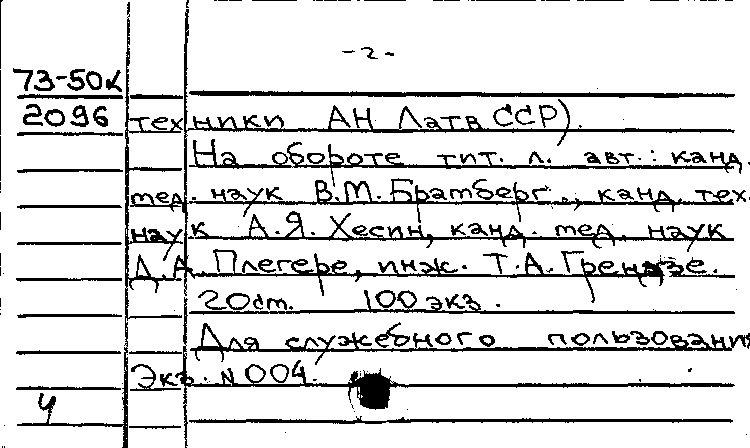 -2-
73-50к
2096 техники АН Латв ССР).
На обороте тит. л. авт.: канд.
мед. наук В.М. Братберг., канд. тех.
наук А.Я. Хесин, канд. мед. наук
Д.А. Плегере, инж. Т.А. Грендзе.
20cm. 100 экз.
Для служебного пользования
Экз. N 004.
Ч